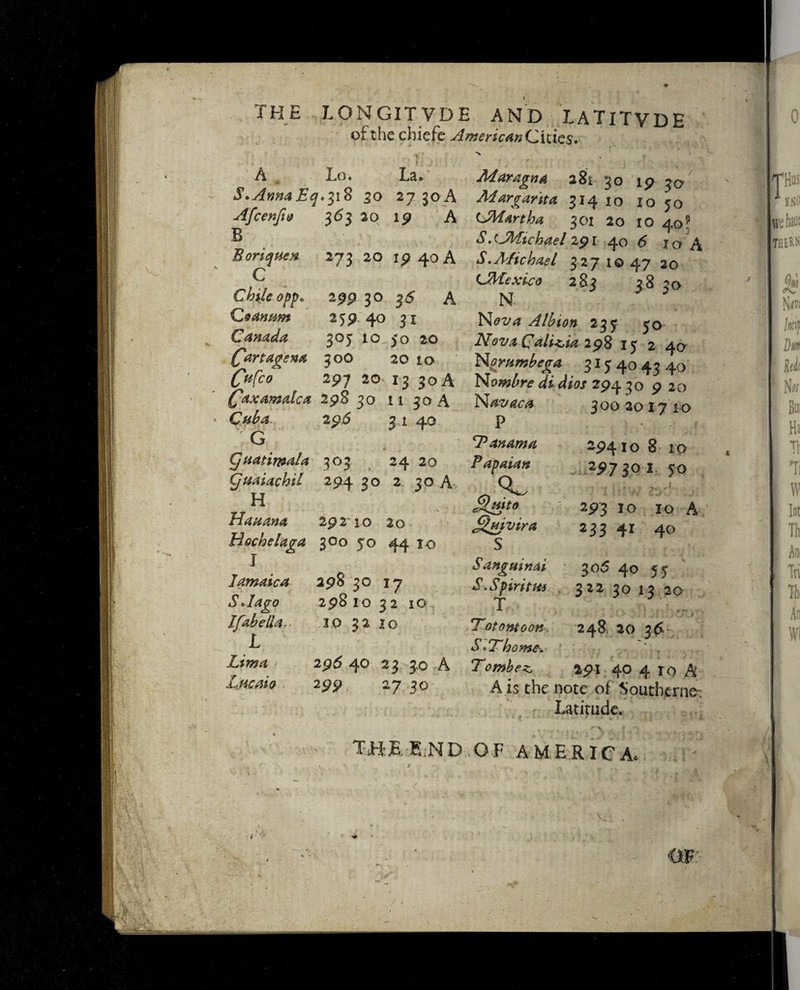 THE LONGITVDE AND LATITVDE
of the chiefe American Cities.
A Lo. La.
S. Anna Eq. 318 30 27 30 A
Ascensio 363 20 19 A
B
Boriquen 273 20 19 40 A
C
Chile opp. 299 30 36 A
Coanum 259 40 31
Canada 305 10 50 20
Cartagena 300 20 10
Cusco 297 20 13 30 A
Caxamalca 298 30 11 30 A
Cuba 296 31 40
G
Quatimala 303 24 20
Quaiachil 294 30 2 30 A
H
Hauana 292 10 20
Hochelaga 300 50 44 10
I
Iamaica 298 30 17
S. Iago 298 10 32 10
Isabella 10 32 10
L
Lima 296 40 23 30 A
Lucaio 299 27 30
Maragna 281 30 19 30
Margarita 314 10 10 50
Martha 301 20 10 40
S. Michael 291 40 6 10 A
S. Michael 327 10 47 20
Mexico 283 38 30
N
Nova Albion 235 50
Nova Calizia 298 15 2 40
Norumbega 315 40 43 40
Nombre di dios 294 30 9 20
Navaca 300 20 17 10
P
Panama 294 10 8 10
Papaian 297 30 1 50
Q
Quito 293 10 10 A
Quivira 233 41 40
S
Sanguinai 306 40 55
S. Spiritus 322 30 13 20
T
Totontoon 248 20 36
S. Thome.
Tombez 291 40 4 10 A
A is the note of Southerne
Latitude.
THE END OF AMERICA.
OF